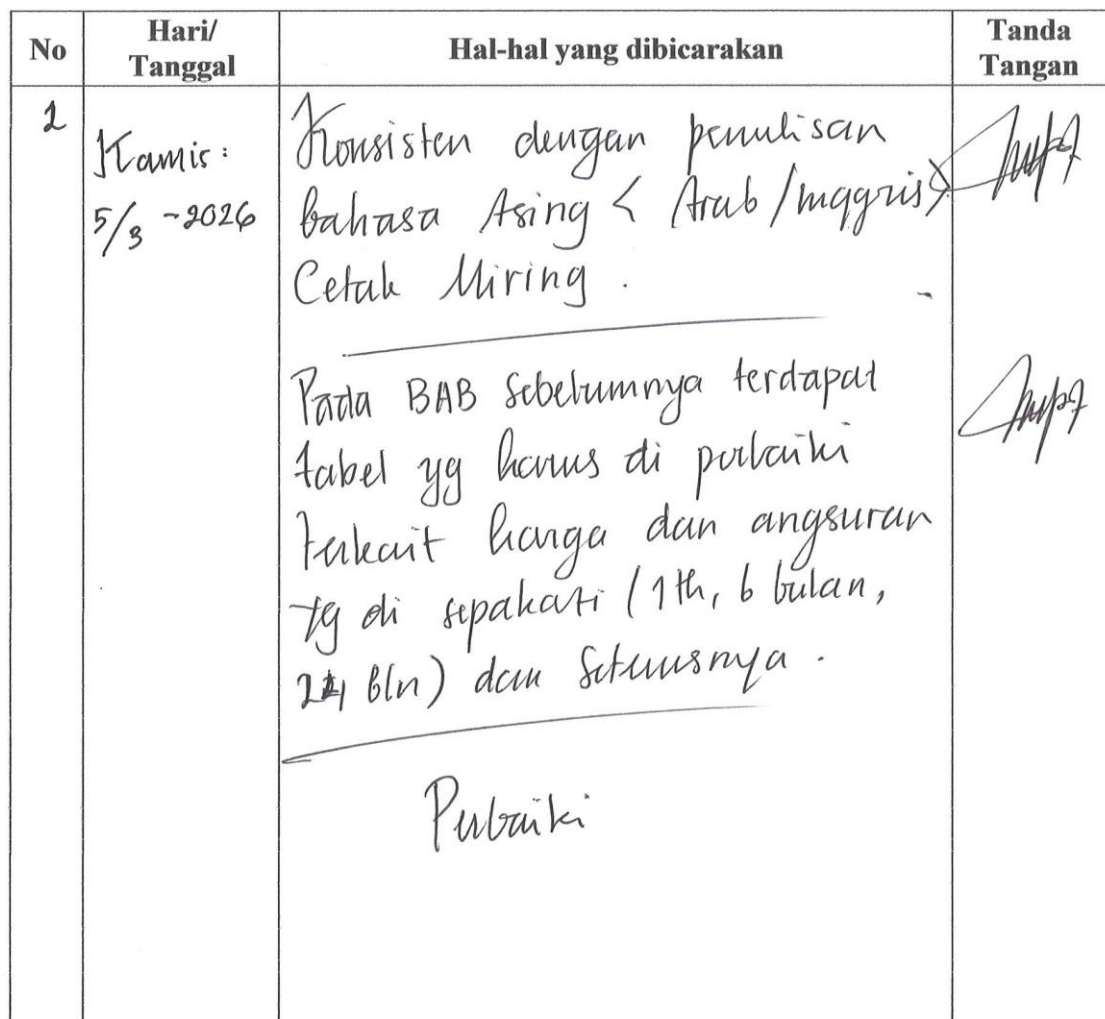 No
Hari/
Tanggal
Hal-hal yang dibicarakan
Tanda
Tangan
1
Kamis:
5/3 - 2026
Konsisten dengan penulisan
bahasa Asing < Arab/Inggris>
Cetak Miring.
Pada BAB sebelumnya terdapat
tabel yg harus di perbaiki
terkait harga dan angsuran
yg di sepakati (1 th, 6 bulan,
24 bln) dan seterusnya.
Perbaiki